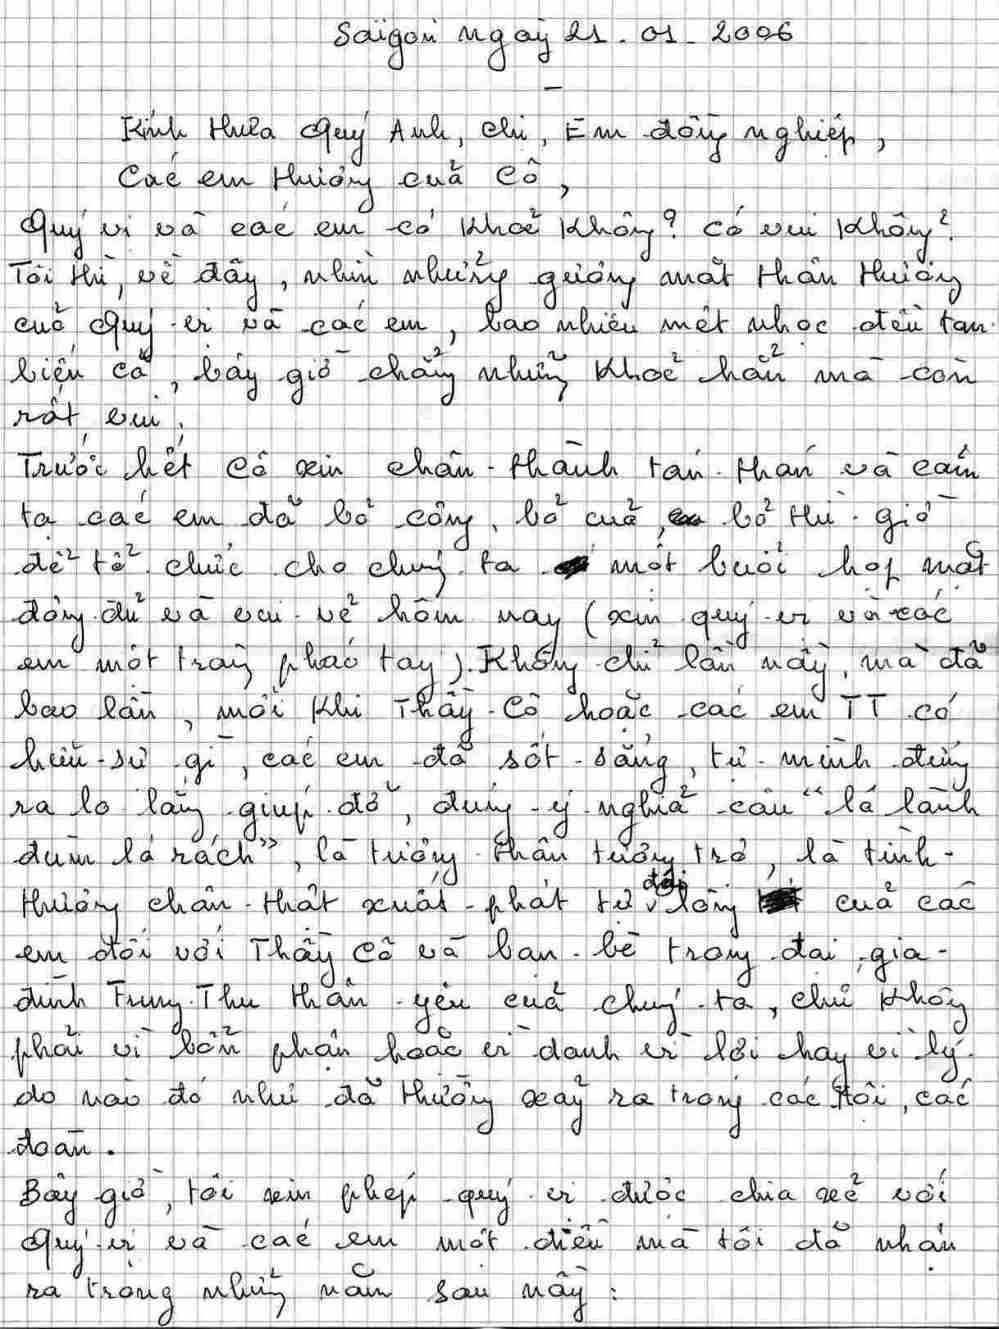 Saigon ngày 21.01.2006
Kính thưa Quý Anh, chị, Em đồng nghiệp,
Các em thương của Cô,
Quý vị và các em có khoẻ không? có vui không?
Tôi thì, về đây, nhìn những gương mặt thân thương
của Quý vị và các em, bao nhiêu mệt nhọc đều tan
biến cả, bây giờ chẳng những khoẻ hẳn mà còn
rất vui.
Trước hết Cô xin chân-thành tán-thán và cám
tạ các em đã bỏ công, bỏ của, bỏ thì-giờ
để tổ-chức cho chúng ta một buổi họp mặt
đông đủ và vui-vẻ hôm nay (xin quý-vị và các
em một tràng pháo tay). Không chỉ lần này, mà đã
bao lần, mỗi khi Thầy-Cô hoặc các em TT có
hữu-sự gì, các em đã sốt-sắng, tự-mình đứng
ra lo lắng giúp-đỡ, đúng ý-nghĩa câu "lá lành
đùm lá rách", là tương-thân tương trợ, là tình-
thương chân-thật xuất-phát từ đáy lòng của các
em đối với Thầy Cô và bạn-bè trong đại-gia-
đình Trưng-Thu thân-yêu của chúng-ta, chứ không
phải vì bổn phận hoặc vì danh vì lợi hay vì lý-
do nào đó như đã thường xảy ra trong các hội, các
đoàn.
Bây giờ, tôi xin phép quý-vị được chia xẻ với
Quý-vị và các em một điều mà tôi đã nhận
ra trong những năm sau này: